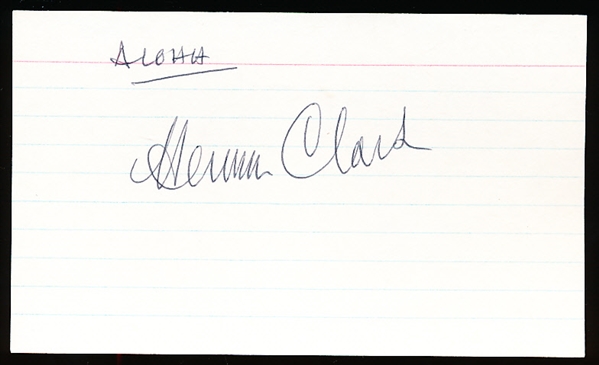 ALOHA
Herman Clark